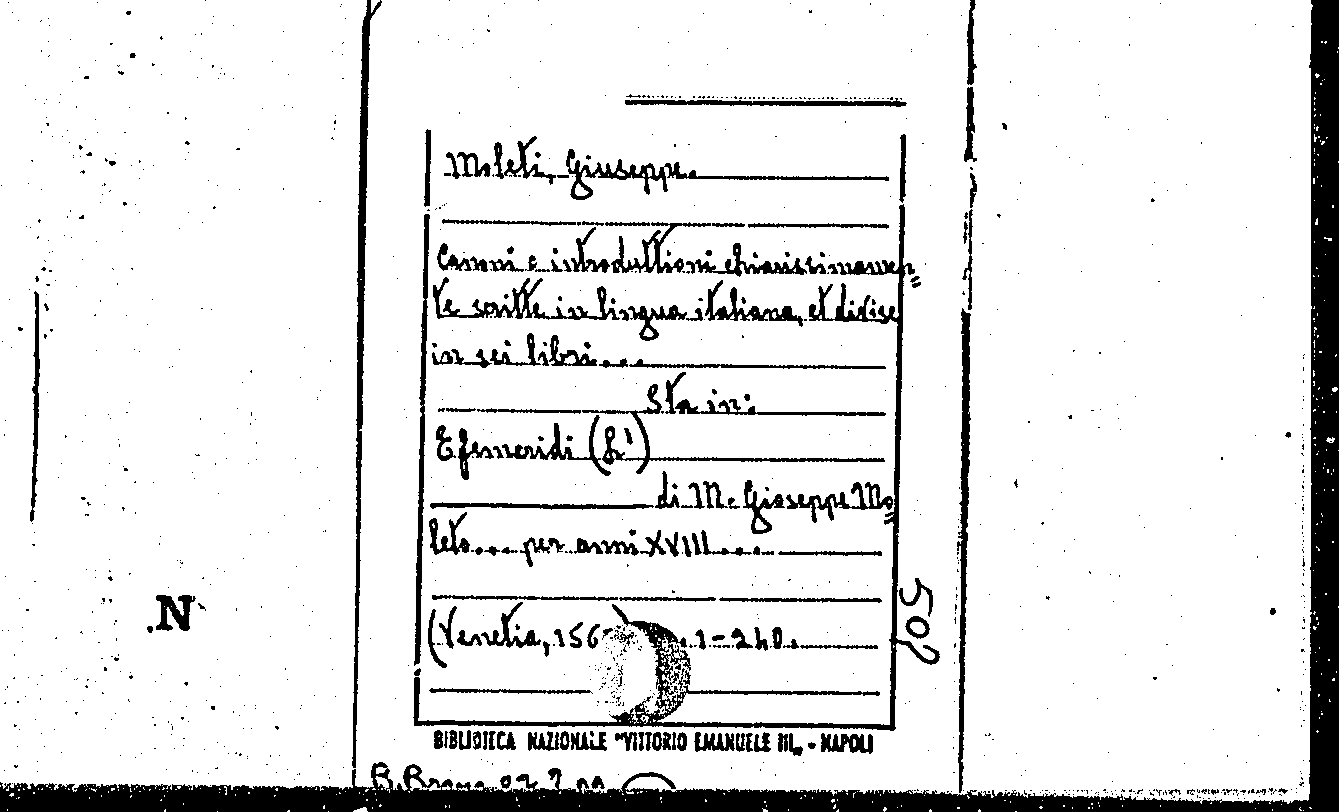 Moleti, Giuseppe.
Canoni e introduttioni chiarissimamen„
te scritte in lingua italiana, et divise
in sei libri...
Sta in:
Efemeridi (L')
di M. Gioseppe Mo„
leto... per anni XVIII...
(Venetia, 156 1-240.
508
N
BIBLIOTECA NAZIONALE "VITTORIO EMANUELE III„ - NAPOLI